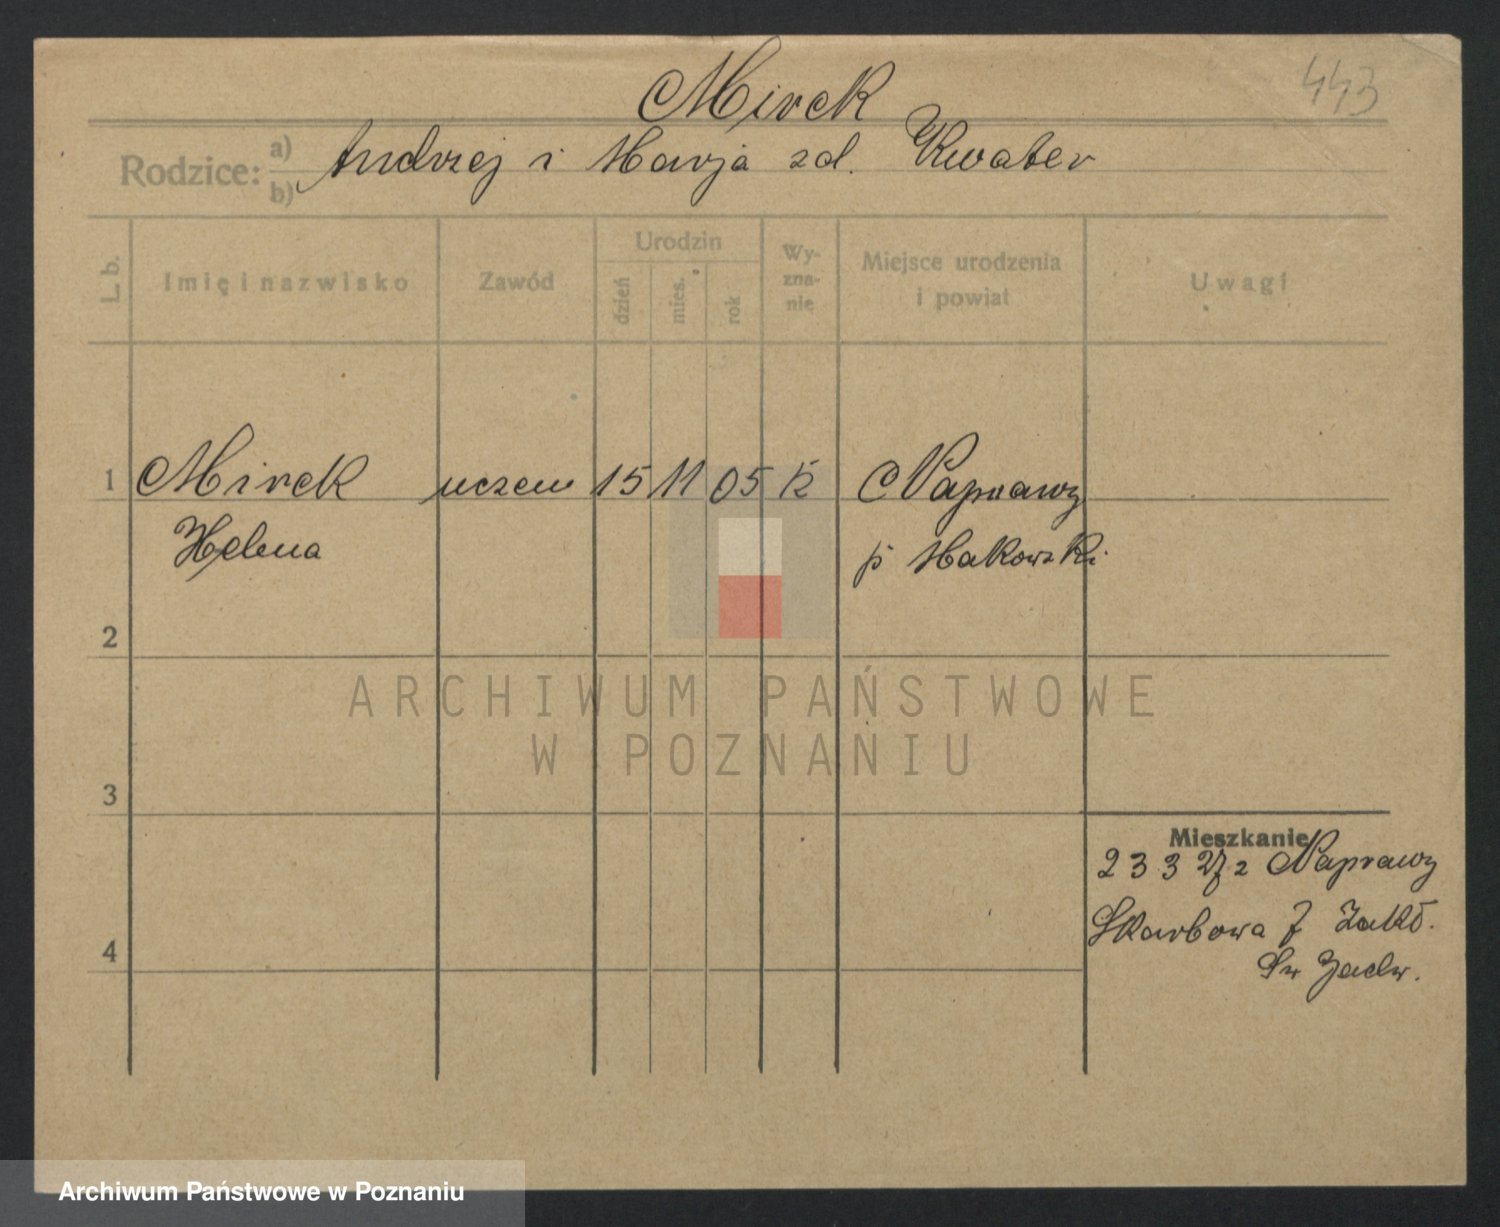 Mirek
443
Rodzice: a) b) Andrzej i Marja zd. Kwater
L. b.
Imię i nazwisko
Zawód
Urodzin
dzień
mies.
rok
Wy-
zna-
nie
Miejsce urodzenia
i powiat
Uwagi
1 Mirek uczen 15 11 05 k Naprawy
Helena
p Makowski
2
ARCHIWUM PAŃSTWOWE
W POZNANIU
3
Mieszkanie
23 3 27 z Naprawy
Skarbowa 7 Zakł.
4
Archiwum Państwowe w Poznaniu